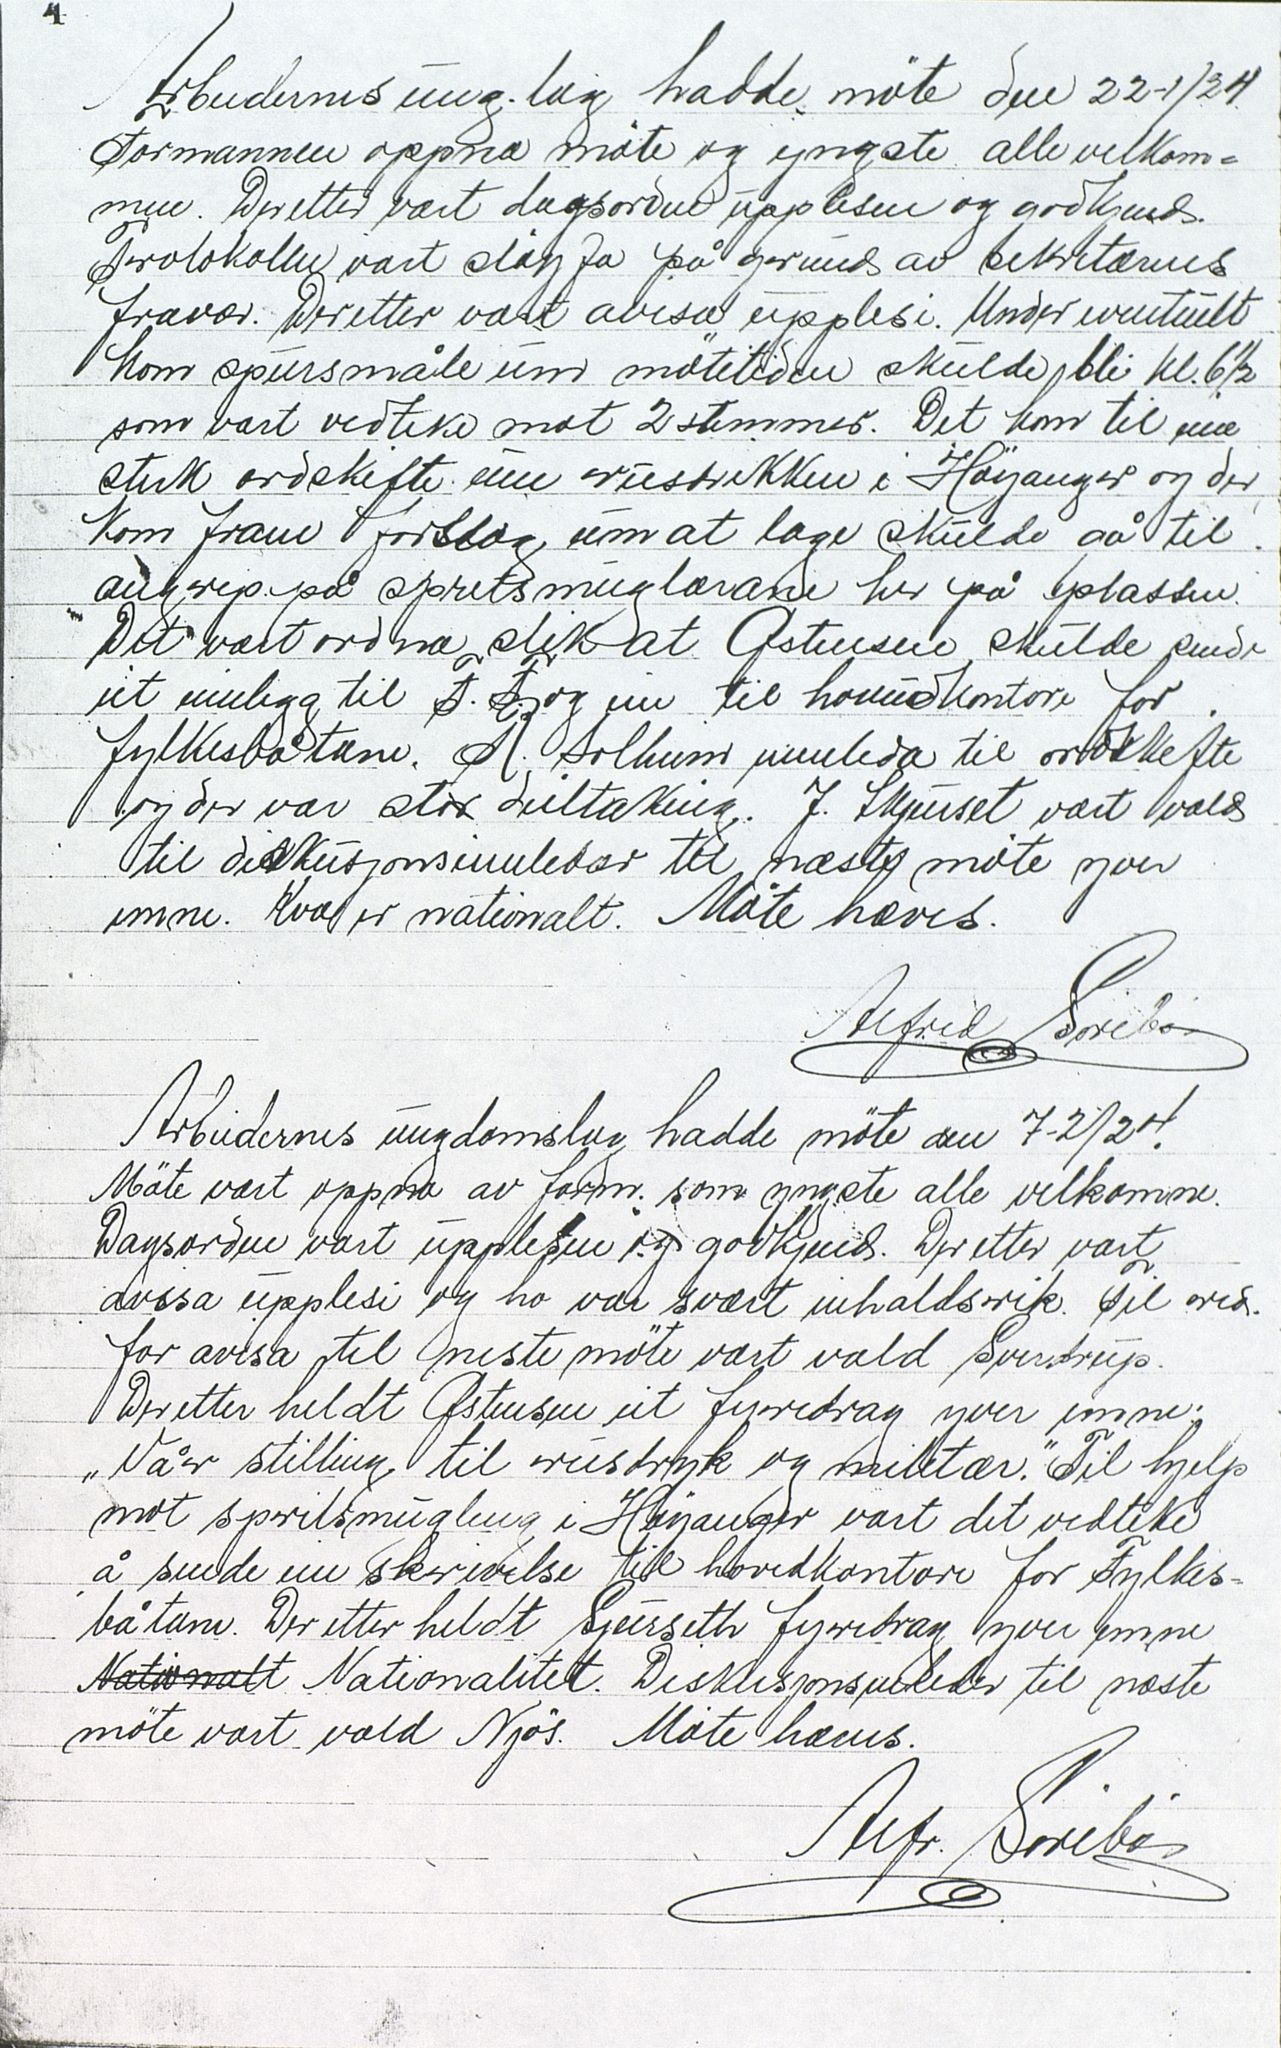 4
Arbeidernes ung.lag hadde möte den 22-1/24
Formannen oppna möte og yngste alle velkom=
men. Deretter vart dagsorden upplesen og godkjend.
Protokollen vart sløyfa på grund av sekretærens
fravær. Deretter vart avisa upplesi. Under eventuelt
kom spursmåle um mötetiden skulde bli kl. 6½
som vart vedteke mot 2 stemmer. Det kom til ein
sterk ordskifte um rusdrikken i Höyanger og der
kom fram forslag um at lage skulde gå til
angrep på spritsmuglarane her på plassen.
Det vart ordna slik at Østensen skulde sende
eit innlegg til F. T. og ein til hovudkontore for
fylkesbåtane. A. Solheim innleda til ordskifte
og der var stor deiltaking. J. Skjerset vart vald
til diskusjonsinnleder til næste möte yver
emne. Kva er nationalt. Möte hæves.
Alfred Sörebö
Arbeidernes ungdomslag hadde möte den 7-2/24.
Möte vart oppna av form. som yngste alle velkomne.
Dagsorden vart upplesen og godkjend. Deretter vart
avisa upplesi og ho var svært inhaldsrik. Til red.
for avisa til neste möte vart vald Sverdrup.
Deretter heldt Østensen eit fyredrag yver emne:
„Vår stilling til rusdryk og militær." Til hjelp
mot spritsmugling i Höyanger vart det vedteke
å sende ein skrivelse til hovedkontore for Fylkes=
båtane. Deretter heldt Sjurseth fyredrag yver emne
Nationalt Nationalitet. Diskusjonsinleder til næste
möte vart vald Njös. Möte hæves.
Alfr. Sörebö